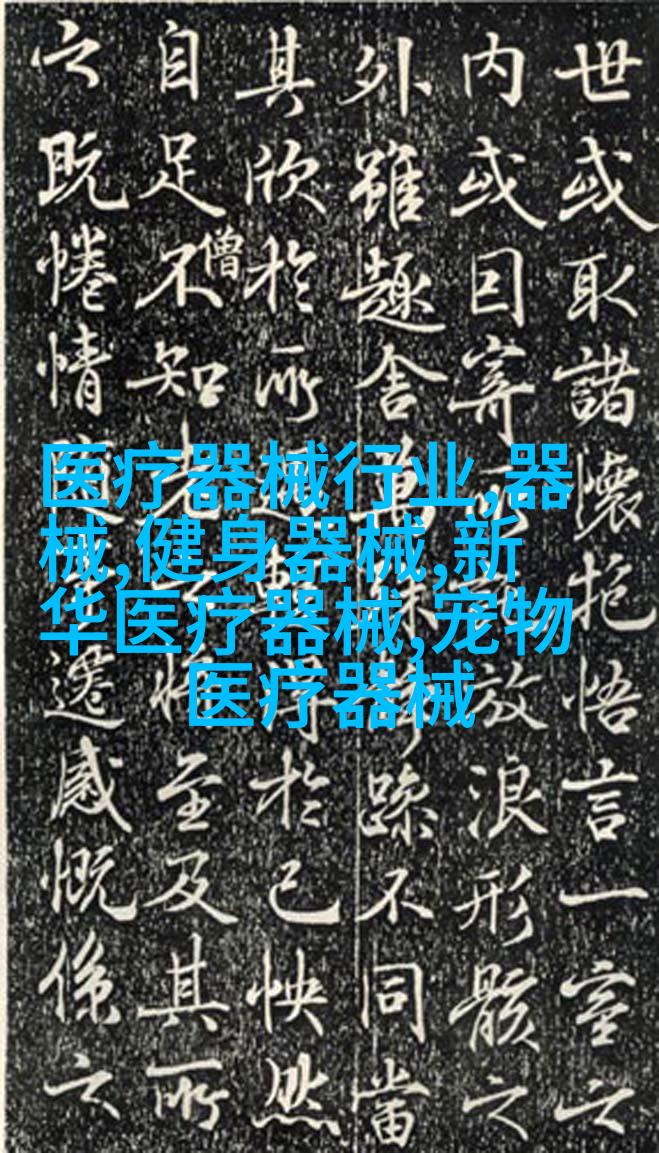 世或取諸懷抱悟言一室之
内或因寄所託放浪形骸之
外雖趣舍萬殊静躁不同當
其欣於所遇暫得於己怏然
僧
自足不知老之将至及其所
之既惓情隨事遷感慨係之
医疗器械行业,器
械,健身器械,新
华医疗器械,宠物
医疗器械